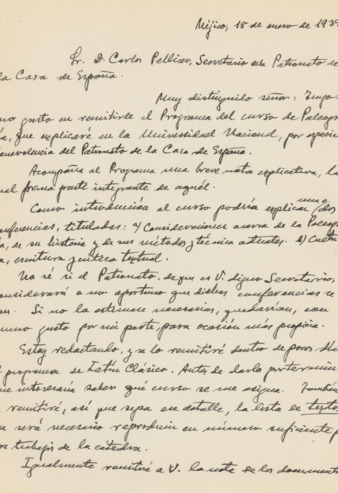 Méjico, 18 de enero de 1939
Sr. D. Carlos Pellicer, Secretario del Patronato de
la Casa de España.
Muy distinguido señor: Tengo
mo gusto en remitirle el Programa del curso de Paleogr
a, que explicaré en la Universidad Nacional, por especi
benevolencia del Patronato de la Casa de España.
Acompaña al Programa una breve nota explicativa, la
ual forma parte integrante de aquél.
Como introducción al curso podría explicar una/dos
onferencias, tituladas: 1) Consideraciones acerca de la Paleogr
a, de su historia y de sus métodos y técnica actuales. 2) Cultu
a, escritura y crítica textual.
No sé si el Patronato, de que es V. digno Secretario,
considerará o no oportuno que dichas conferencias se
en. Si no las estimase necesarias, quedarían, con
umo gusto por mi parte, para ocasión más propicia.
Estoy redactando, y se lo remitiré dentro de pocos día
l programa de Latín Clásico. Antes de darlo por termin
me interesaría saber qué curso se me asigna. También
remitiré, así que sepa en detalle, la lista de textos
ue será necesario reproducir en número suficiente p
os trabajos de la cátedra.
Igualmente remitiré a V. la nota de los documento